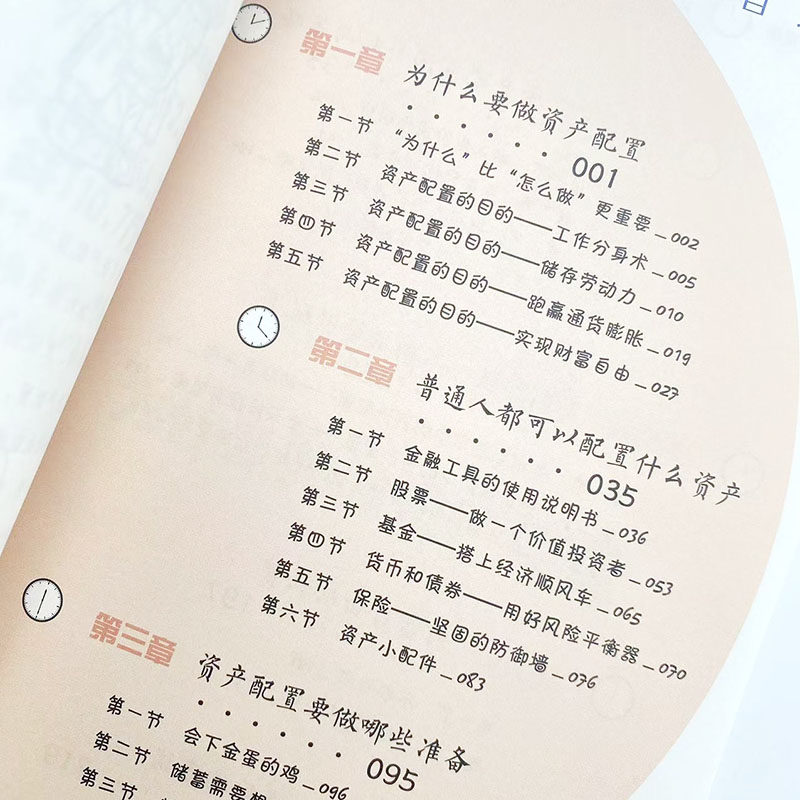 第一章 为什么要做资产配置
······ 001
第一节 “为什么”比“怎么做”更重要_002
第二节 资产配置的目的——工作分身术_005
第三节 资产配置的目的——储存劳动力_010
第四节 资产配置的目的——跑赢通货膨胀_019
第五节 资产配置的目的——实现财富自由_027
第二章 普通人都可以配置什么资产
······ 035
第一节 金融工具的使用说明书_036
第二节 股票——做一个价值投资者_053
第三节 基金——搭上经济顺风车_065
第四节 货币和债券——用好风险平衡器_070
第五节 保险——坚固的防御墙_076
第六节 资产小配件_083
第三章 资产配置要做哪些准备
······ 095
第一节 会下金蛋的鸡_096
第二节 储蓄需要
第三节